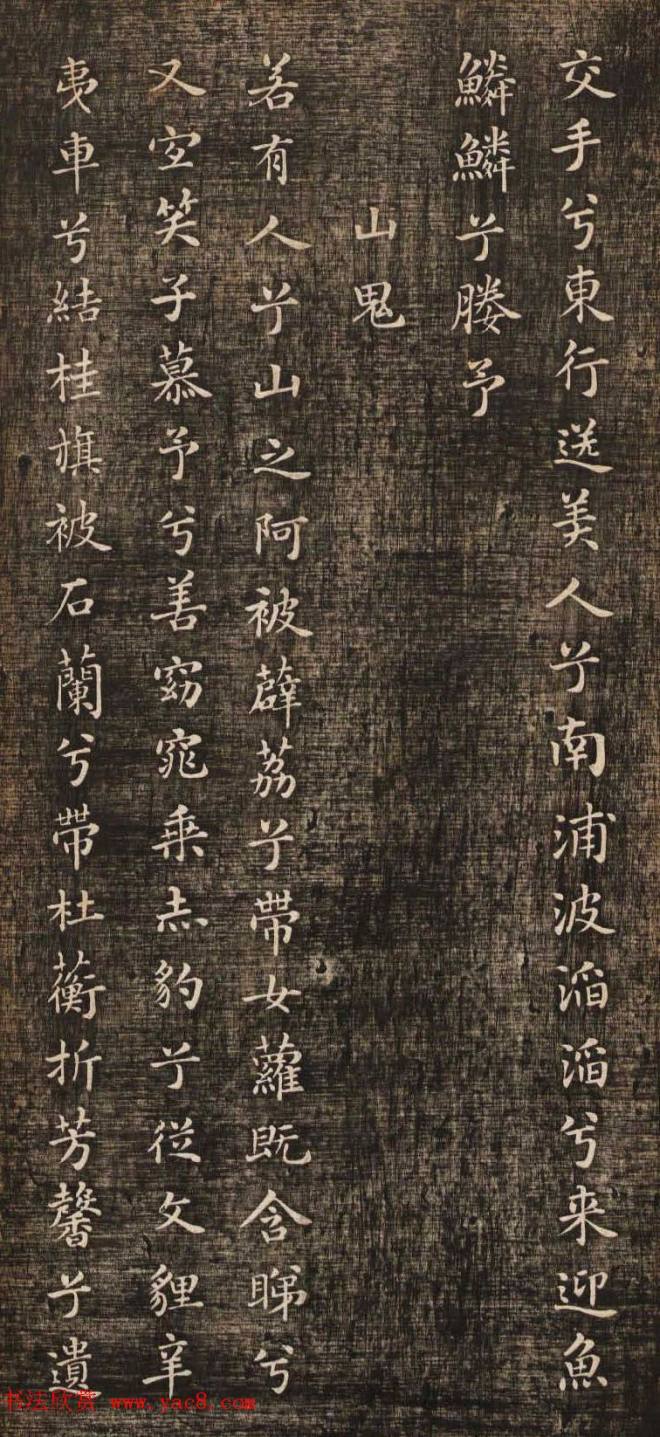 交手兮東行送美人兮南浦波滔滔兮来迎魚
鱗鱗兮媵予
山鬼
若有人兮山之阿被薜荔兮帶女蘿既含睇兮
又宜笑子慕予兮善窈窕乗赤豹兮從文貍辛
夷車兮結桂旗被石蘭兮帶杜蘅折芳馨兮遺
书法欣赏 www.yac8.com